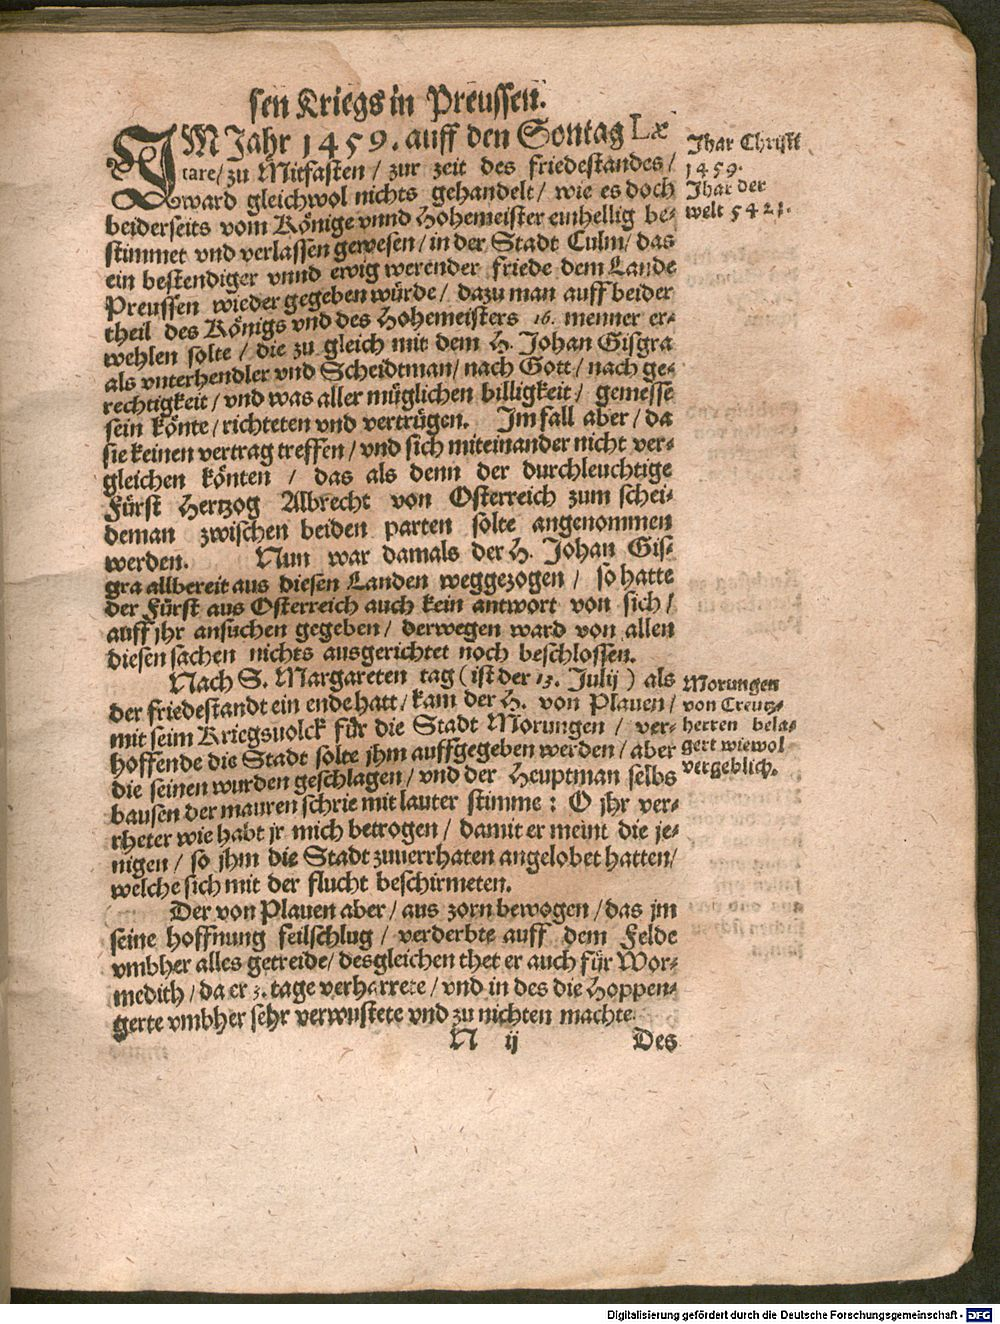 sen Kriegs in Preussen.
IM Jahr 1459. auff den Sontag Læ
tare/ zu Mitfasten / zur zeit des friedestandes /
ward gleichwol nichts gehandelt / wie es doch
beiderseits vom Könige vnnd Hohemeister einhellig be-
stimmet vnd verlassen gewesen / in der Stadt Culm / das
ein bestendiger vnnd ewig werender friede dem Lande
Preussen wieder gegeben würde / dazu man auff beider
theil des Königs vnd des Hohemeisters 16. menner er-
wehlen solte / die zu gleich mit dem H. Johan Gisgra
als vnterhendler vnd Scheidtman / nach Gott / nach ge-
rechtigkeit / vnd was aller müglichen billigkeit / gemesse
sein könte / richteten vnd vertrügen. Im fall aber / da
sie keinen vertrag treffen / vnd sich miteinander nicht ver-
gleichen könten / das als denn der durchleuchtige
Fürst Hertzog Albrecht von Osterreich zum schei-
deman zwischen beiden parten solte angenommen
werden. Nun war damals der H. Johan Gis-
gra allbereit aus diesen Landen weggezogen / so hatte
der Fürst aus Osterreich auch kein antwort von sich /
auff jhr ansuchen gegeben / derwegen ward von allen
diesen sachen nichts ausgerichtet noch beschlossen.
Nach S. Margareten tag (ist der 13. Julij) als
der friedestandt ein ende hatt / kam der H. von Plauen /
mit seim Kriegsuolck für die Stadt Morungen / ver-
hoffende die Stadt solte jhm auffgegeben werden / aber
die seinen wurden geschlagen / vnd der Heuptman selbs
bausen der mauren schrie mit lauter stimme : O jhr ver-
rheter wie habt jr mich betrogen / damit er meint die je-
nigen / so jhm die Stadt zuuerrhaten angelobet hatten /
welche sich mit der flucht beschirmeten.
Der von Plauen aber / aus zorn bewogen / das jm
seine hoffnung feilschlug / verderbte auff dem Felde
vmbher alles getreide / desgleichen thet er auch für Wor-
medith / da er 3. tage verharrete / vnd in des die Hoppen-
gerte vmbher sehr verwustete vnd zu nichten machte.
N ij Des
Jhar Christi
1459.
Jhar der
welt 5421.
Morungen
von Creutz-
herren bela-
gert wiewol
vergeblich.
Digitalisierung gefördert durch die Deutsche Forschungsgemeinschaft - DFG